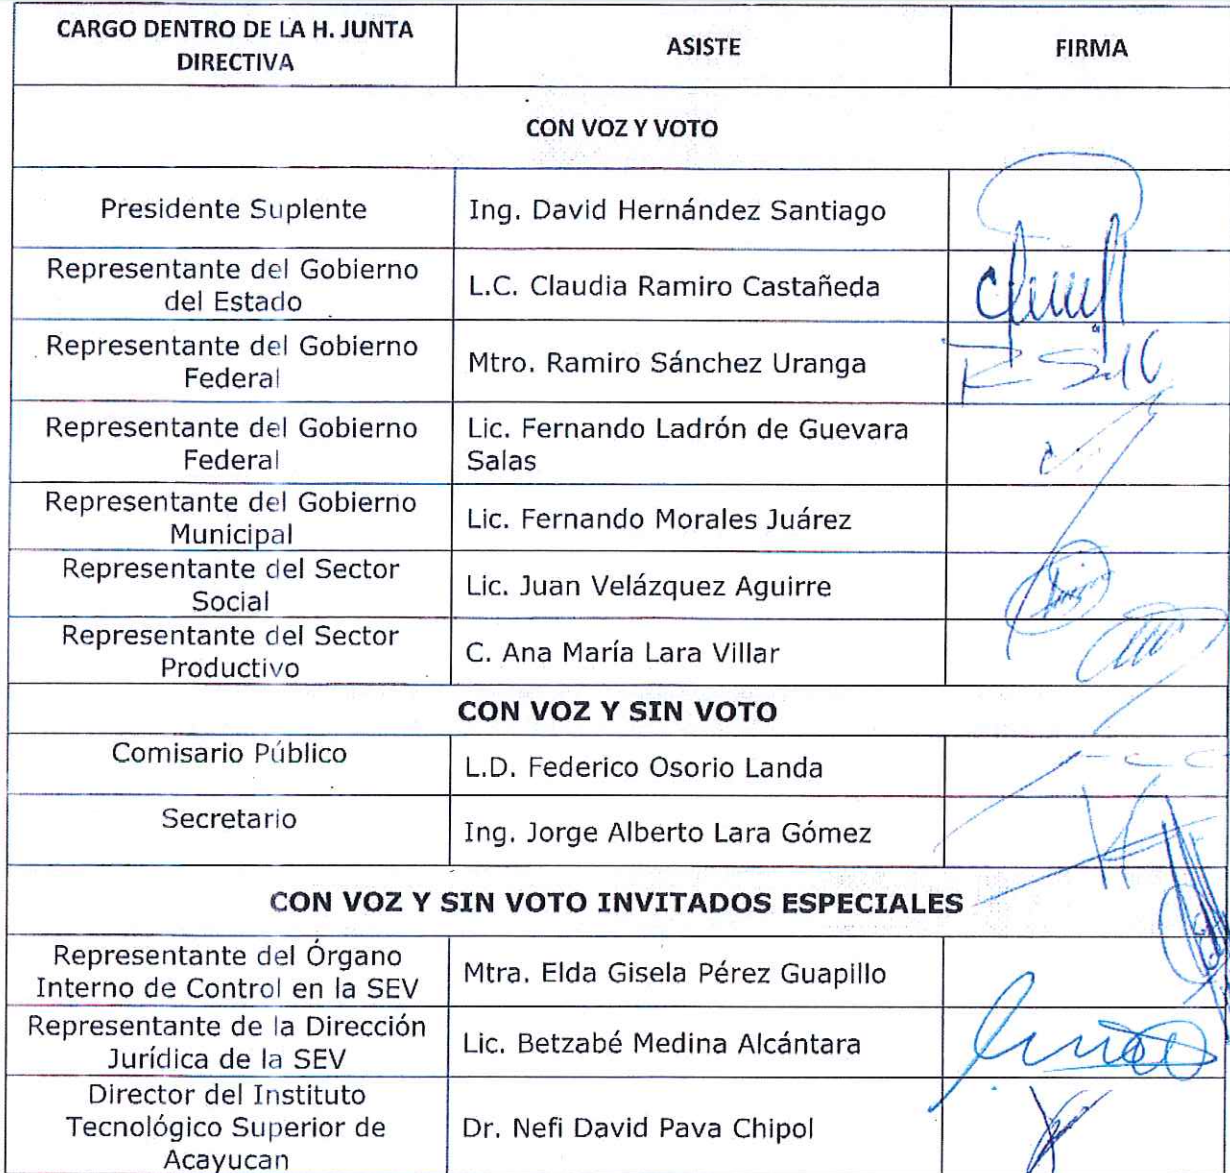 CARGO DENTRO DE LA H. JUNTA
DIRECTIVA
ASISTE
FIRMA
CON VOZ Y VOTO
Presidente Suplente
Ing. David Hernández Santiago
Representante del Gobierno
del Estado
L.C. Claudia Ramiro Castañeda
Representante del Gobierno
Federal
Mtro. Ramiro Sánchez Uranga
Representante del Gobierno
Federal
Lic. Fernando Ladrón de Guevara
Salas
Representante del Gobierno
Municipal
Lic. Fernando Morales Juárez
Representante del Sector
Social
Lic. Juan Velázquez Aguirre
Representante del Sector
Productivo
C. Ana María Lara Villar
CON VOZ Y SIN VOTO
Comisario Público
L.D. Federico Osorio Landa
Secretario
Ing. Jorge Alberto Lara Gómez
CON VOZ Y SIN VOTO INVITADOS ESPECIALES
Representante del Órgano
Interno de Control en la SEV
Mtra. Elda Gisela Pérez Guapillo
Representante de la Dirección
Jurídica de la SEV
Lic. Betzabé Medina Alcántara
Director del Instituto
Tecnológico Superior de
Acayucan
Dr. Nefi David Pava Chipol